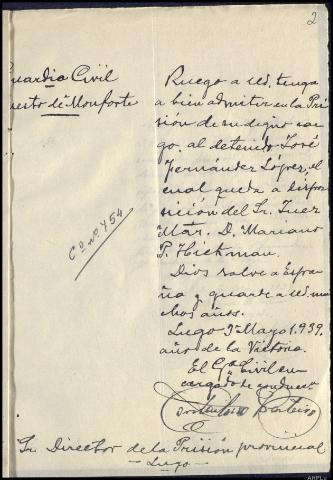 2
Guardia Civil
Puesto de Monforte
Ruego a ud. tenga
a bien admitir en la Pri
sión de su digno car
go, al detenido José
Fernández López, el
cual queda a dispo
sición del Sr. Juez
Mtar. D. Mariano
P. Hickman.
Dios salve a Espa
ña y guarde a ud. mu
chos años.
Lugo 3 Mayo 1.939.
año de la Victoria.
El Gª Civil en
cargado de conducc
Cº nº 454
Sr. Director de la Prisión provincial
- Lugo -